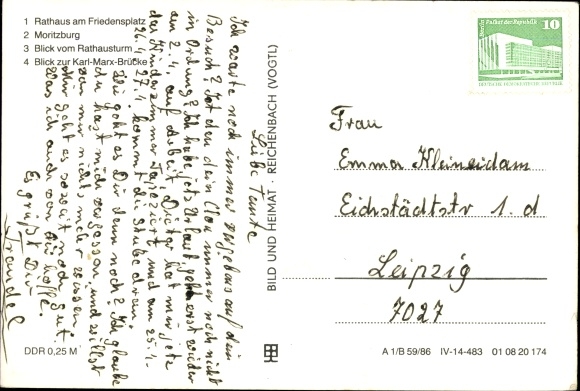 1 Rathaus am Friedensplatz
2 Moritzburg
3 Blick vom Rathausturm
4 Blick zur Karl-Marx-Brücke
Liebe Tante
Ich warte noch immer vergebens auf dein
Besuch? Ist den dein Clou immer noch nicht
in Ordung? Ich habe jets Urlaub, gehe erst wieder
am 2.4. auf arbeit, Dieter hat mir jetz
das Kinderzimmer Tapeziert, und am 25.4.
26.4. 27.4 kommt die Stube dran.
Wie geht es Dir denn noch? Ich glaube
du hast mich vergessen, und willst
von mir nichts mehr wissen,
mir geht es soweit noch gut.
Was ich auch von dir hoffe.
Es grüßt Dir
Traudel
DDR 0,25 M
BILD UND HEIMAT · REICHENBACH (VOGTL)
Berlin Palast der Republik 10
DEUTSCHE DEMOKRATISCHE REPUBLIK
Frau
Emma Kleineidam
Eichstädtstr 1. d
Leipzig
7027
A 1/B 59/86 IV-14-483 01 08 20 174